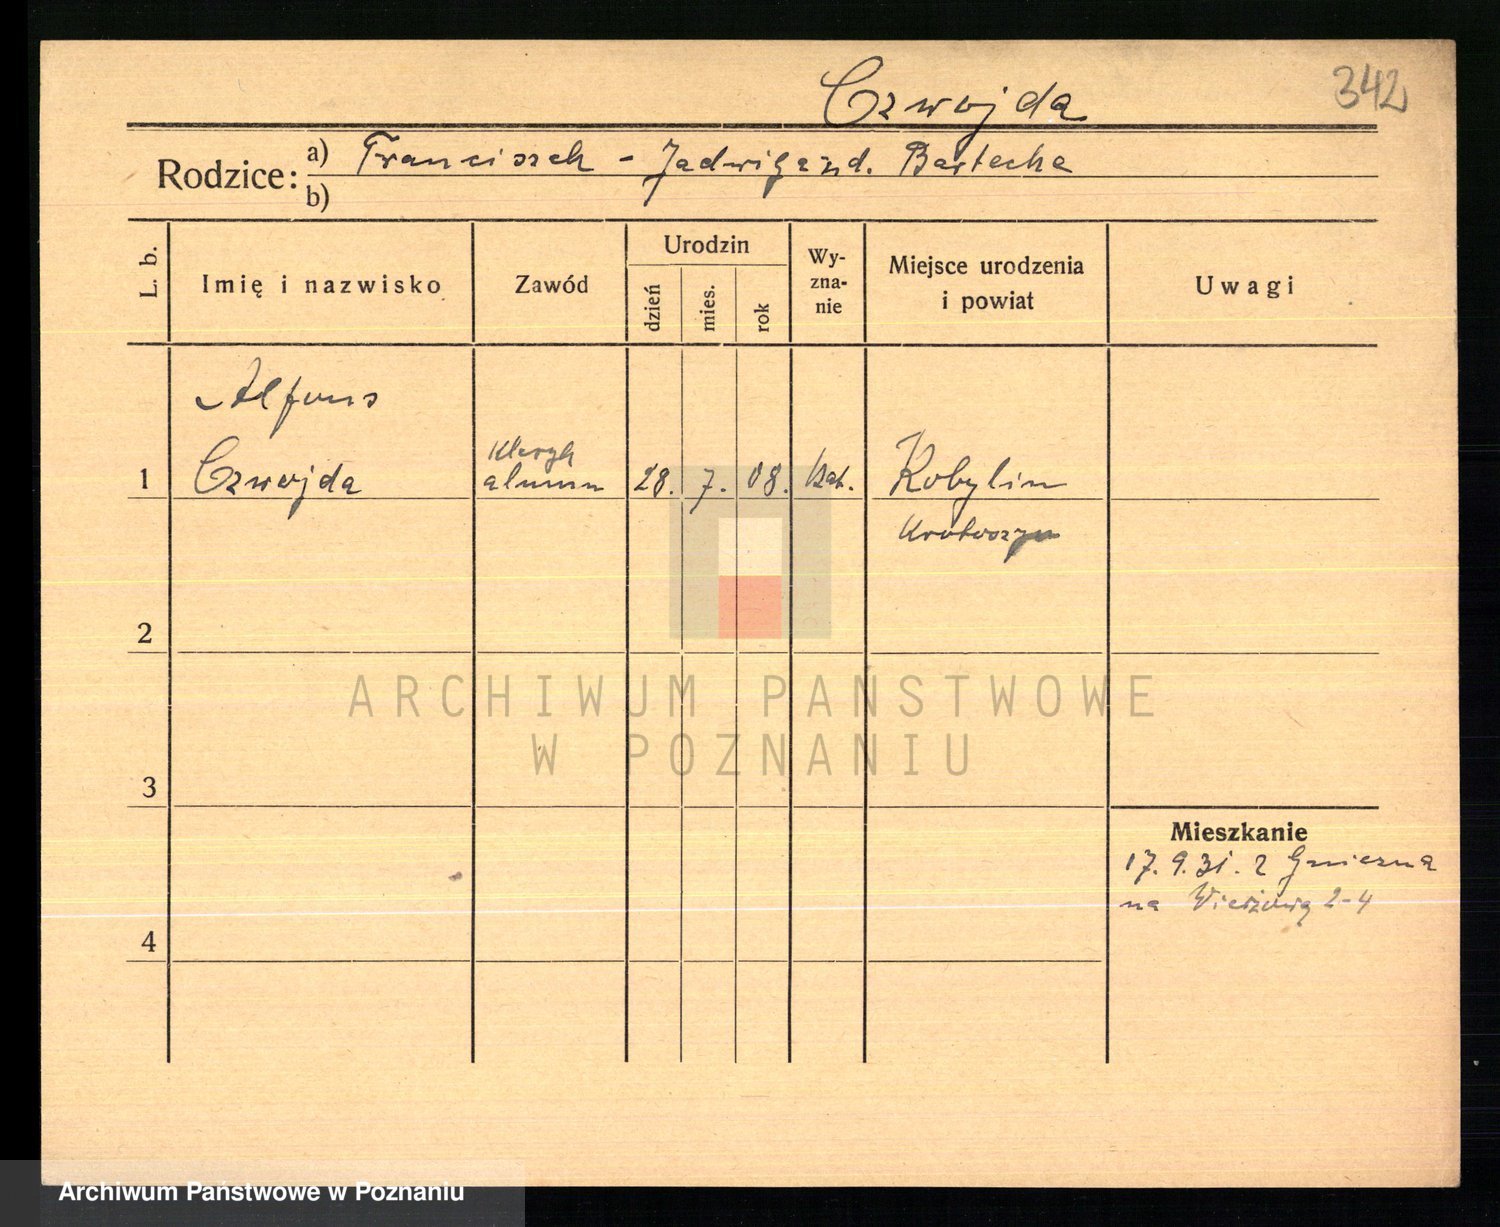 Czwojda
342
Rodzice: a) Franciszek - Jadwiga z d. Bartecka
b)
L. b.
Imię i nazwisko
Zawód
Urodzin
dzień
mies.
rok
Wy-
zna-
nie
Miejsce urodzenia
i powiat
Uwagi
Alfons
1 Czwojda
Kleryk
alumn
28. 7. 08. kat. Kobylin
Krotoszyn
2
3
4
Mieszkanie
17. 9. 31. z Gniezna
na Wieżową 2-4
ARCHIWUM PAŃSTWOWE
W POZNANIU
Archiwum Państwowe w Poznaniu